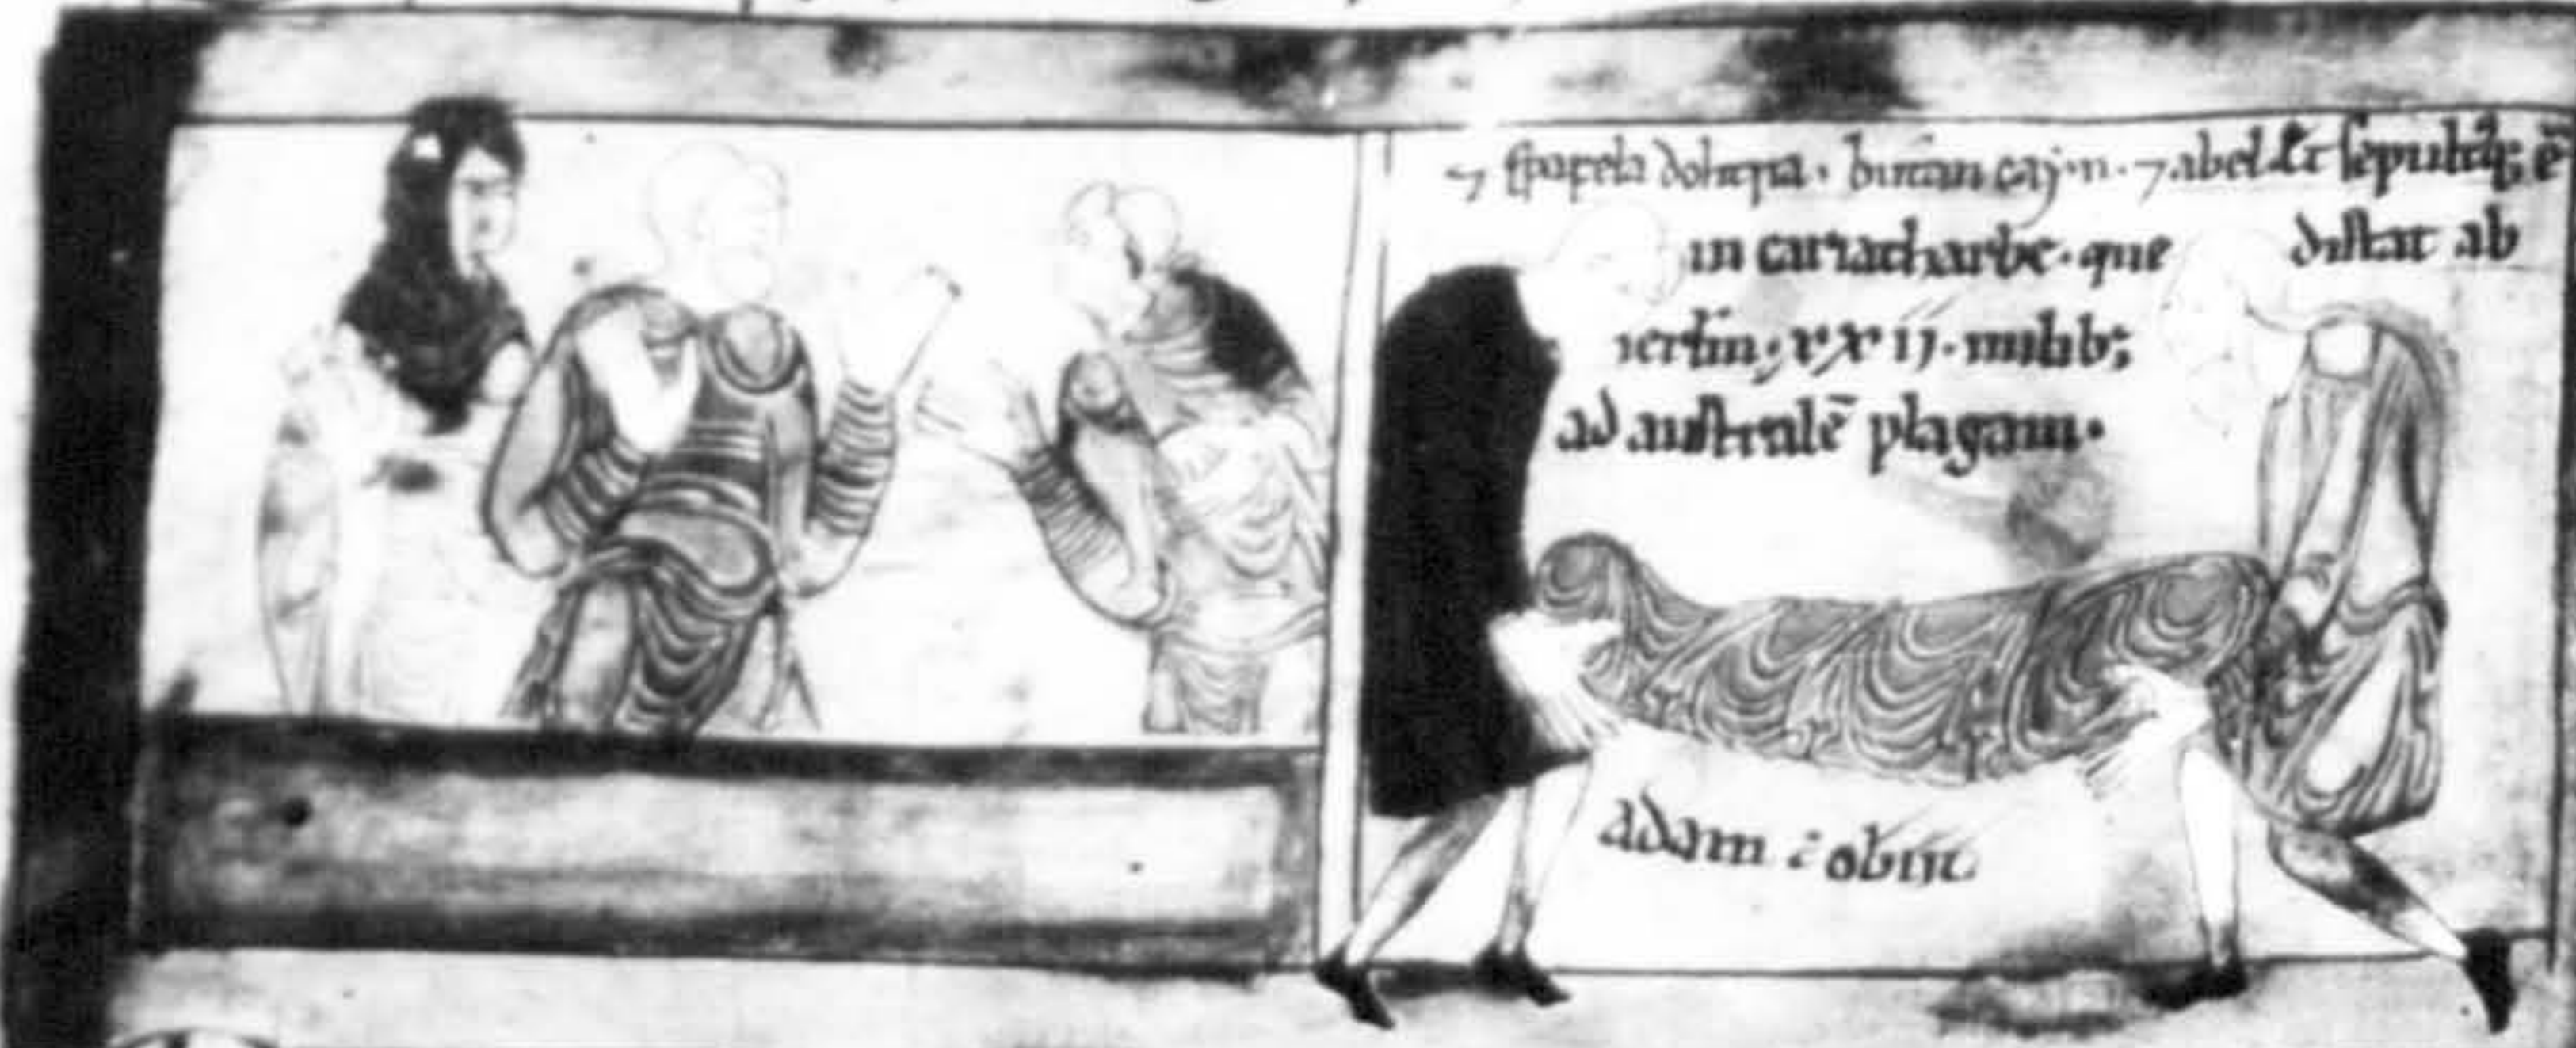 ⁊ sƿa fela dohtra · butan cayin · ⁊ abel Et sepult; ē
in cariatharbe · que distat ab
ierl̄m; xxij · milib;
ad australē plagam ·
adam : obiit